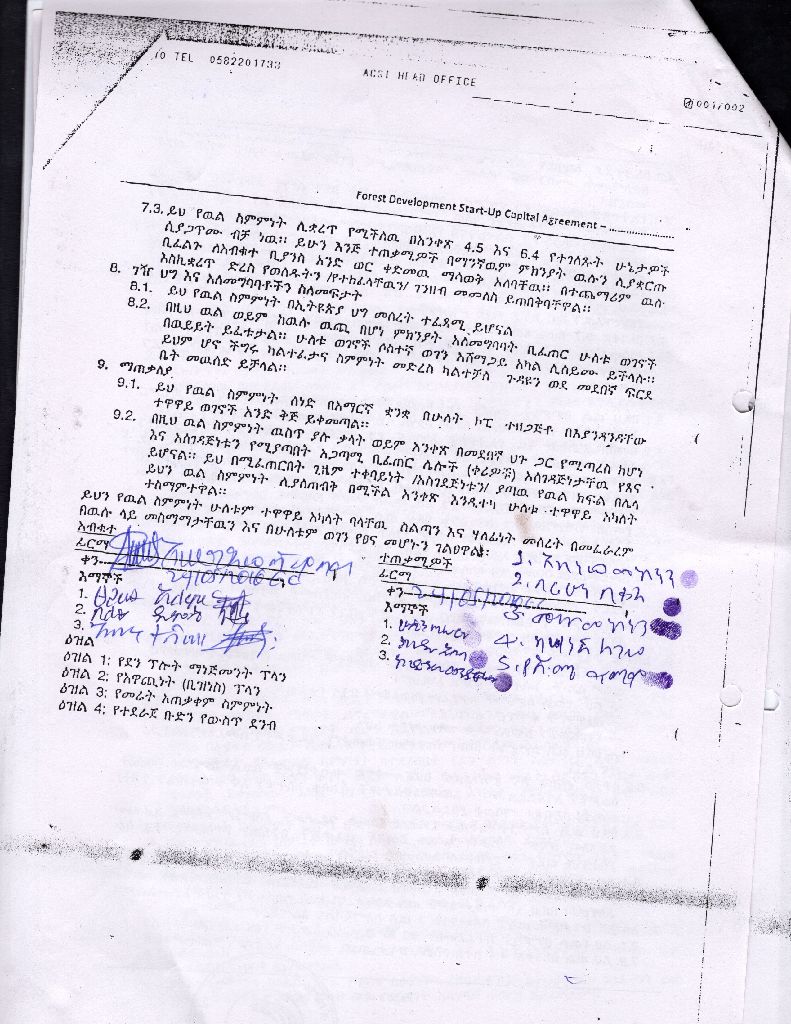 TO TEL 0582201733 ACSI HEAD OFFICE 001/002
Forest Development Start-Up Capital Agreement – ........................
7.3. ይህ የዉል ስምምነት ሊቋረጥ የሚችለዉ በአንቀጽ 4.5 እና 6.4 የተገለጹት ሁኔታዎች
ሲያጋጥሙ ብቻ ነዉ። ይሁን እንጅ ተጠቃሚዎች በማንኛዉም ምክንያት ዉሉን ሊያቋርጡ
ቢፈልጉ ለአብቁተ ቢያንስ አንድ ወር ቀድመዉ ማሳወቅ አለባቸዉ። በተጨማሪም ዉሉ
እስኪቋረጥ ድረስ የወሰዱትን /የተከፈላቸዉን/ ገንዘብ መመለስ ይጠበቅባቸዋል።
8. ገዥ ሀግ እና አለመግባባቶችን ስለመፍታት
8.1. ይህ የዉል ስምምነት በኢትዮጵያ ሀግ መሰረት ተፈጻሚ ይሆናል
8.2. በዚህ ዉል ወይም ከዉሉ ዉጪ በሆነ ምክንያት አለመግባባት ቢፈጠር ሁለቱ ወገኖች
በዉይይት ይፈቱታል። ሁለቱ ወገኖች ሶስተኛ ወገን አሸማጋይ አካል ሊሰይሙ ይችላሉ።
ይህም ሆኖ ችግሩ ካልተፈታና ስምምነት መድረስ ካልተቻለ ጉዳዩን ወደ መደበኛ ፍርድ
ቤት መዉሰድ ይቻላል።
9. ማጠቃለያ
9.1. ይህ የዉል ስምምነት ሰነድ በአማርኛ ቋንቋ በሁለት ኮፒ ተዘጋጅቶ በእያንዳንዳቸው
ተዋዋይ ወገኖች አንድ ቅጅ ይቀመጣል።
9.2. በዚህ ዉል ስምምነት ዉስጥ ያሉ ቃላት ወይም አንቀጽ በመደበኛ ህጉ ጋር የሚጣረስ ከሆነ
እና አስገዳጅነቱን የሚያጣበት አጋጣሚ ቢፈጠር ሌሎች (ቀሪዎቹ) አስገዳጅነታቸዉ የጸና
ይሆናል። ይህ በሚፈጠርበት ጊዜም ተቀባይነት /አስገደጅነቱን/ ያጣዉ የዉል ክፍል በሌላ
ይህን ዉል ስምምነት ሊያስጠብቅ በሚችል አንቀጽ እንዲተካ ሁለቱ ተዋዋይ አካለት
ተስማምተዋል።
ይህን የዉል ስምምነት ሁለቱም ተዋዋይ አካላት ባላቸዉ ስልጣን እና ሃለፊነት መሰረት በመፈራረም
በዉሉ ላይ መስማማታቸዉን እና በሁለቱም ወገን የፀና መሆኑን ገልፀዋል፡
አብቁተ
ፊርማ
ቀን
እማኞች
1.
2.
3.
ተጠቃሚዎች
ፊርማ
ቀን
እማኞች
1.
2.
3.
1.
2.
3.
4.
5.
ዕዝል
ዕዝል 1: የደን ፕሎት ማነጅመንት ፕላን
ዕዝል 2: የአዋጪነት (ቢዝነስ) ፕላን
ዕዝል 3: የመሬት አጠቃቀም ስምምነት
ዕዝል 4: የተደራጀ ቡድን የውስጥ ደንብ